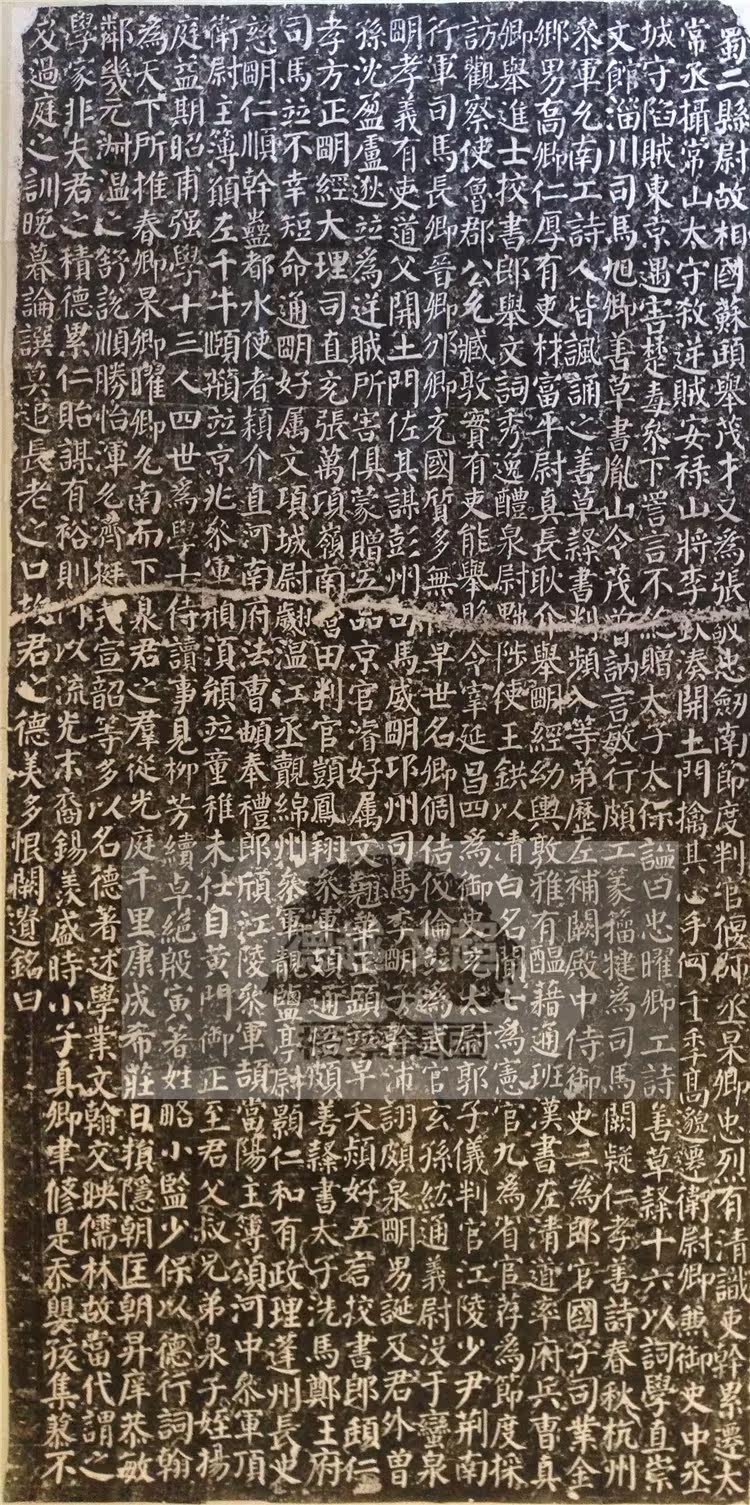 蜀二縣尉故相國蘇頲舉茂才又為張敬忠劒南節度判官偃師丞杲卿忠烈有清識吏幹累遷太
常丞攝常山太守殺逆賊安祿山將李欽湊開土門擒其心手何千年高邈遷衛尉卿兼御史中丞
城守陷賊東京遇害楚毒參下詈言不絶贈太子太保謚曰忠曜卿工詩善草隸十六以詞學直崇
文館淄川司馬旭卿善草書胤山令茂曾訥言敏行頗工篆籀犍為司馬闕疑仁孝善詩春秋杭州
參軍允南工詩人皆諷誦之善草隸書判頻入等第歷左補闕殿中侍御史三為郎官國子司業金
鄉男喬卿仁厚有吏材富平尉真長耿介舉明經幼輿敦雅有醖藉通班漢書左清道率府兵曹真
卿舉進士挍書郎舉文詞秀逸醴泉尉黜陟使王鉷以清白名聞七為憲官九為省官荐為節度採
訪觀察使魯郡公允臧敦實有吏能舉縣令宰延昌四為御史充太尉郭子儀判官江陵少尹荆南
行軍司馬長卿晉卿邠卿充國質多無祿早世名卿倜佶伋倫並為武官玄孫紘通義尉没于蠻泉
明孝義有吏道父開土門佐其謀彭州司馬威明邛州司馬季明子幹沛詡頗泉明男誕及君外曾
孫沈盈盧逖並為逆賊所害俱蒙贈五品京官濬好属文翹華正頣並早夭熲好五言挍書郎頲仁
孝方正明經大理司直充張萬頃嶺南營田判官顗鳳翔參軍頍通悟頗善隸書太子洗馬鄭王府
司馬並不幸短命通明好属文項城尉翽溫江丞覿綿州參軍靚鹽亭尉顥仁和有政理蓬州長史
慈明仁順幹蠱都水使者穎介直河南府法曹頔奉禮郎頎江陵參軍頡當陽主簿頌河中參軍頂
衛尉主簿願左千牛頤頵並京兆參軍頯須䫀並童稚未仕自黃門御正至君父叔兄弟泉子姪揚
庭益期昭甫强學十三人四世為學士侍讀事見柳芳續卓絶殷寅著姓略小監少保以德行詞翰
為天下所推春卿杲卿曜卿允南而下泉君之羣從光庭千里康成希莊日損隱朝匡朝昇庠恭敏
鄰幾元淑溫之舒說順勝怡渾允濟挺式宣韶等多以名德著述學業文翰交映儒林故當代謂之
學家非夫君之積德累仁貽謀有裕則何以流光末裔錫羨盛時小子真卿聿修是忝嬰孩集蓼不
及過庭之訓晚暮論譔莫追長老之口故君之德美多恨闕遺銘曰